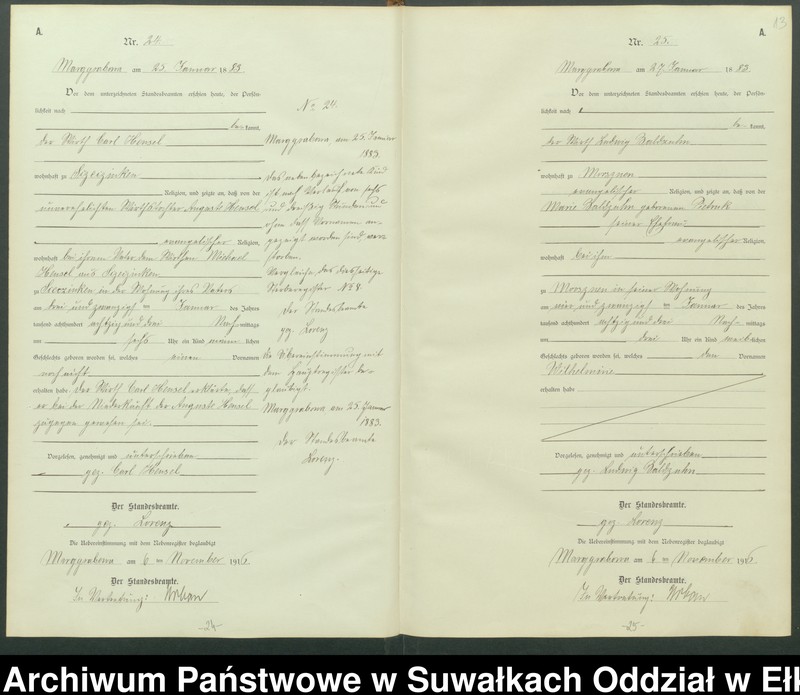 A.
Nr. 24.
Marggrabowa am 25. Januar 1883
Vor dem unterzeichneten Standesbeamten erschien heute, der Persön-
lichkeit nach
be kannt,
der Wirth Carl Hensel
wohnhaft zu
Religion, und zeigte an, daß von der
unverehelichten Wirthstochter Auguste Hensel
evangelischer Religion,
wohnhaft bei ihrem Vater dem Wirthen Michael
Hensel aus
zu in der Wohnung ihres Vaters
am drei und zwanzigsten Januar des Jahres
tausend achthundert achtzig und drei Nach-mittags
um sechs Uhr ein Kind männ-lichen
Geschlechts geboren worden sei, welches einen Vornamen
noch nicht
erhalten habe Der Wirth Carl Hensel erklärte, daß
er bei der Niederkunft der Auguste Hensel
zugegen gewesen sei.
Vorgelesen, genehmigt und unterschrieben
gez. Carl Hensel
Der Standesbeamte.
gez. Lorenz
Die Uebereinstimmung mit dem Nebenregister beglaubigt
Marggrabowa am 6 ten November 191
Der Standesbeamte.
In Vertretung: Urban
-24-
No 24.
Marggrabowa, am 25. Januar
1883.
Das neben bezeichnete Kind
ist nach Verlauf von sechs
und dreißig Stunden und
ohne daß Vornamen an-
gezeigt worden sind ver-
storben.
Vergleiche das diesseitige
Sterberegister No 8.
Der Standesbeamte
gez. Lorenz
Die Übereinstimmung mit
dem Hauptregister be-
glaubigt.
Marggrabowa am 25. Januar
1883.
Der Standesbeamte
Lorenz.
13
A.
Nr. 25.
Marggrabowa am 27. Januar 1883.
Vor dem unterzeichneten Standesbeamten erschien heute, der Persön-
lichkeit nach
be kannt,
der Wirth Ludwig
wohnhaft zu Moneznen
evangelischer Religion, und zeigte an, daß von der
Marie geborenen
seiner Ehefrau
evangelischer Religion,
wohnhaft bei ihm
zu in seiner Wohnung
am vier und zwanzigsten Januar des Jahres
tausend achthundert achtzig und drei Nach-mittags
um drei Uhr ein Kind weib-lichen
Geschlechts geboren worden sei, welches den Vornamen
Wilhelmine
erhalten habe
Vorgelesen, genehmigt und unterschrieben
gez. Ludwig
Der Standesbeamte.
gez. Lorenz
Die Uebereinstimmung mit dem Nebenregister beglaubigt
Marggrabowa am 6 ten November 191
Der Standesbeamte.
In Vertretung: Urban
-25-
Archiwum Państwowe w Suwałkach Oddział w Eł